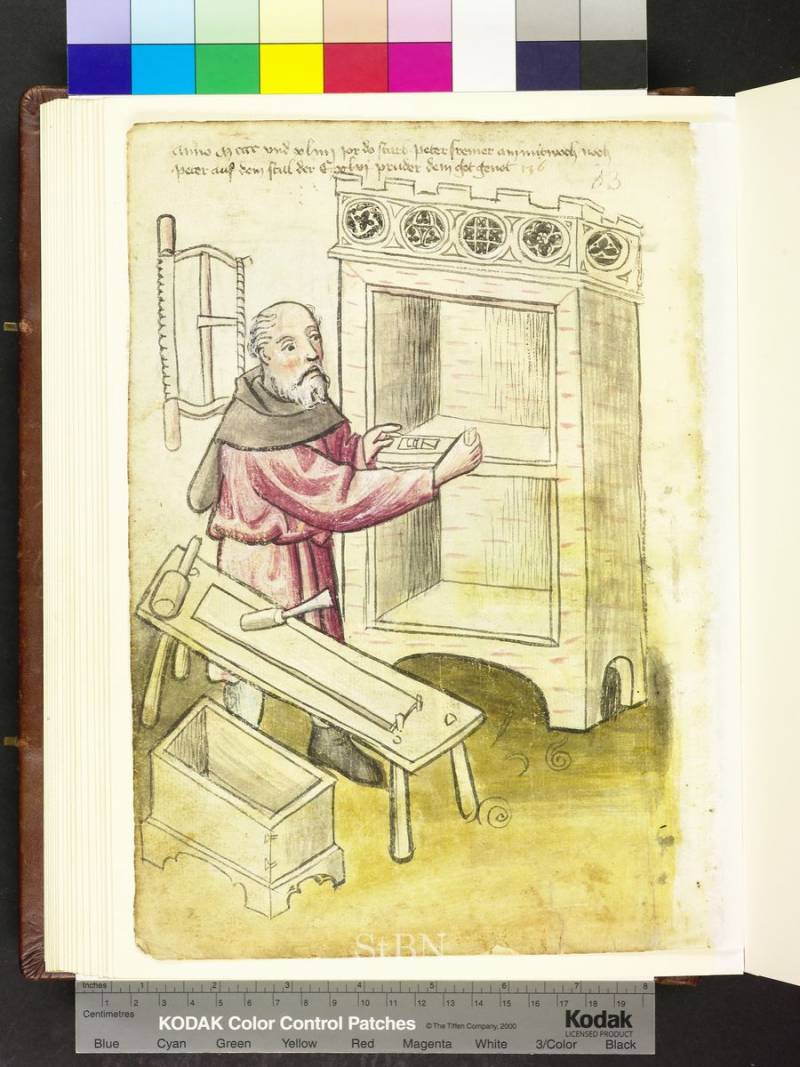 Anno M cccc und xliiij jor do starb peter screiner am mitwoch noch
peter auf dem stul der C xlvj pruder dem got genot 146
53
StBN
Inches 1 2 3 4 5 6 7 8
Centimetres 1 2 3 4 5 6 7 8 9 10 11 12 13 14 15 16 17 18 19
KODAK Color Control Patches © The Tiffen Company, 2000 Kodak
LICENSED PRODUCT
Blue Cyan Green Yellow Red Magenta White 3/Color Black